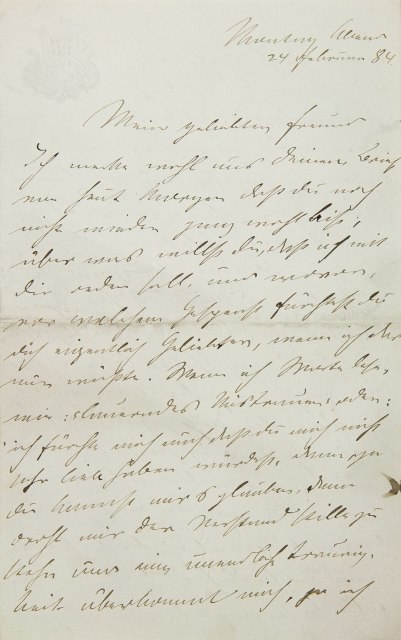 Montag Abend
24 Februar 84.
Mein geliebter Freund
Ich merke wohl aus deinem Brief
von heut Morgen daß du noch
nicht wieder ganz wohl bist,
über was willst du, daß ich mit
dir reden soll, und
vor welchem Gespenst fürchtest du
dich eigentlich Geliebter, wenn ich das
nur wüßte. Wenn ich Worte lese,
wie: lauerndes Mistrauen oder:
ich fürchte mich auch daß du mich nicht
mehr lieb haben würdest, denn
du kannst mir's glauben, dann
steht mir der Verstand stille
und eine unendliche Traurig-
keit überkommt mich, ja ich